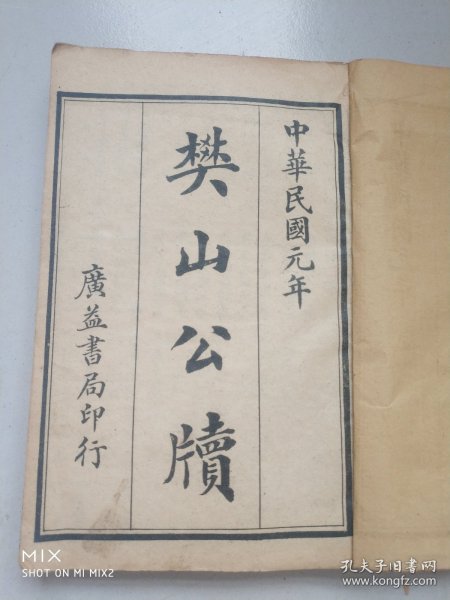 中華民國元年
樊山公牘
廣益書局印行
MIX
SHOT ON MI MIX2
孔夫子旧书网
www.kongfz.com